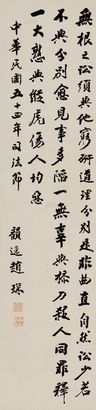 無根之訟須與他窮研道理分別是非曲直自然訟少若
不與分別愈見事多陷一無辜與操刀殺人同罪釋
一大憝與縱虎傷人均惡
中華民國五十四年司法節
韻逸趙琛